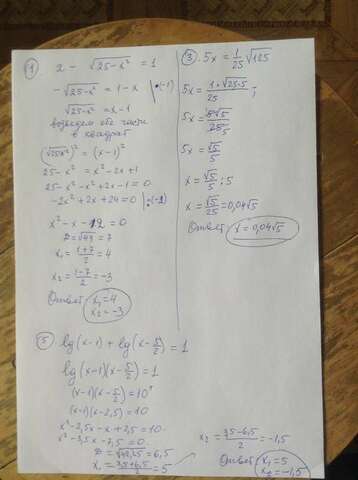 ① 2 - √25-x² = 1
-√25-x² = 1-x |·(-1)
√25-x² = x-1
возведем обе части
в квадрат
(√25-x²)² = (x-1)²
25-x² = x²-2x+1
25-x²-x²+2x-1=0
-2x²+2x+24=0 |:(-2)
x²-x-12=0
D=√49=7
x₁=(1+7)/2=4
x₂=(1-7)/2=-3
Ответ: x₁=4
x₂=-3
③ 5x = 1/25 √125
5x = 1*√25·5/25 ;
5x = 5√5/25
5x = √5/5
x = √5/5 : 5
x = √5/25 = 0,04√5
Ответ: x = 0,04√5
⑤ lg(x-1) + lg(x-5/2) = 1
lg(x-1)(x-5/2) = 1
(x-1)(x-5/2) = 10¹
(x-1)(x-2,5) = 10
x²-2,5x-x+2,5=10
x²-3,5x-7,5=0
D=√42,25=6,5
x₁=(3,5+6,5)/2=5
x₂ = (3,5-6,5)/2 = -1,5
Ответ: x₁=5
x₂=-1,5